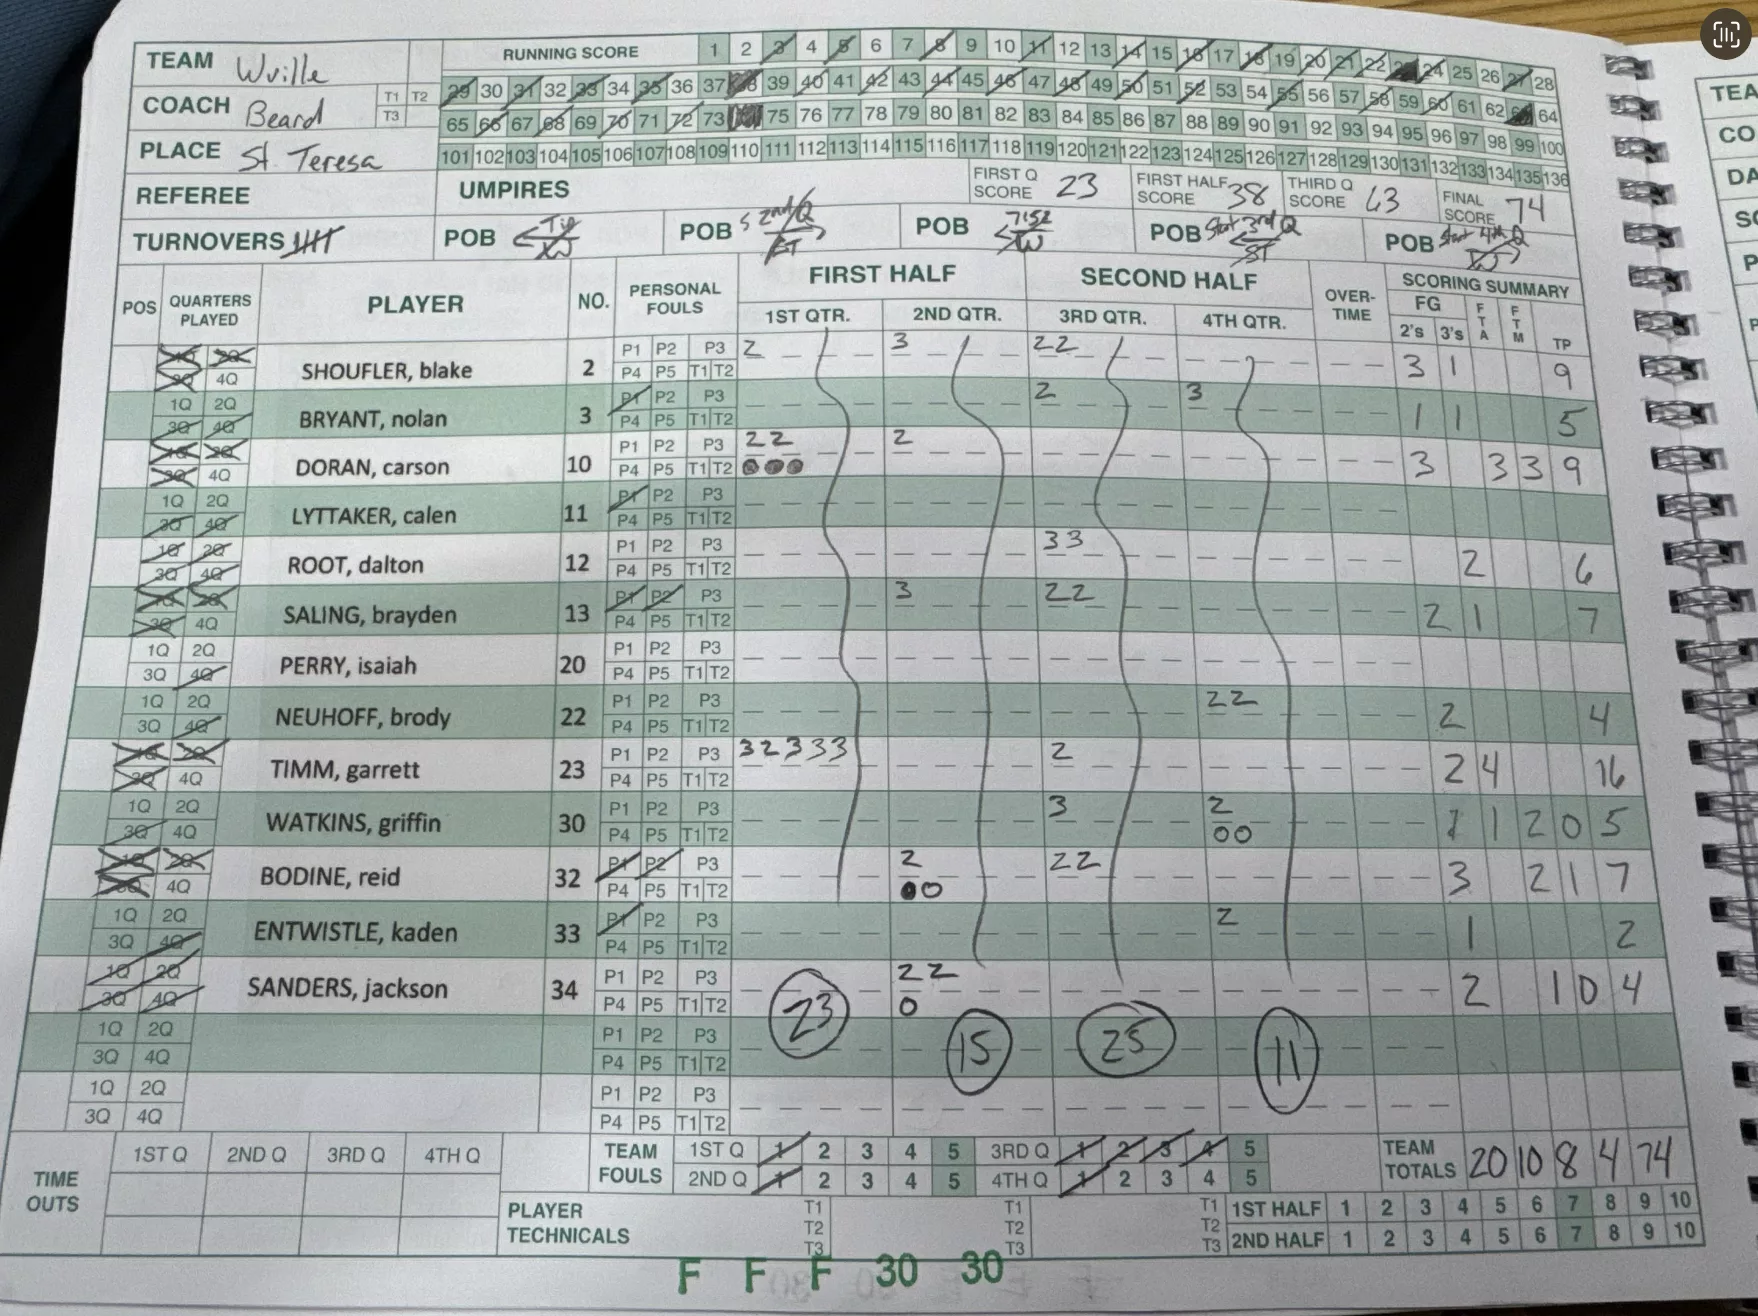 TEAM Wville
RUNNING SCORE 1 2 3 4 5 6 7 8 9 10 11 12 13 14 15 16 17 18 19 20 21 22 23 24 25 26 27 28
COACH Beard T1 T2 T3
29 30 31 32 33 34 35 36 37 38 39 40 41 42 43 44 45 46 47 48 49 50 51 52 53 54 55 56 57 58 59 60 61 62 63 64
65 66 67 68 69 70 71 72 73 75 76 77 78 79 80 81 82 83 84 85 86 87 88 89 90 91 92 93 94 95 96 97 98 99 100
PLACE St. Teresa
101 102 103 104 105 106 107 108 109 110 111 112 113 114 115 116 117 118 119 120 121 122 123 124 125 126 127 128 129 130 131 132 133 134 135 136
REFEREE UMPIRES FIRST Q SCORE 23 FIRST HALF SCORE 38 THIRD Q SCORE 63 FINAL SCORE 74
TURNOVERS POB Tip POB 2nd/Q ST POB W POB Start 3rd Q ST POB Start 4th Q W
POS QUARTERS PLAYED PLAYER NO. PERSONAL FOULS FIRST HALF SECOND HALF OVER-TIME SCORING SUMMARY
1ST QTR. 2ND QTR. 3RD QTR. 4TH QTR. FG 2's 3's FTA FTM TP
1Q 2Q 3Q 4Q SHOUFLER, blake 2 P1 P2 P3 P4 P5 T1 T2 2 3 22 3 1 9
1Q 2Q 3Q 4Q BRYANT, nolan 3 P1 P2 P3 P4 P5 T1 T2 2 3 1 1 5
1Q 2Q 3Q 4Q DORAN, carson 10 P1 P2 P3 P4 P5 T1 T2 22 2 3 3 3 9
1Q 2Q 3Q 4Q LYTTAKER, calen 11 P1 P2 P3 P4 P5 T1 T2
1Q 2Q 3Q 4Q ROOT, dalton 12 P1 P2 P3 P4 P5 T1 T2 33 2 6
1Q 2Q 3Q 4Q SALING, brayden 13 P1 P2 P3 P4 P5 T1 T2 3 22 2 1 7
1Q 2Q 3Q 4Q PERRY, isaiah 20 P1 P2 P3 P4 P5 T1 T2
1Q 2Q 3Q 4Q NEUHOFF, brody 22 P1 P2 P3 P4 P5 T1 T2 22 2 4
1Q 2Q 3Q 4Q TIMM, garrett 23 P1 P2 P3 P4 P5 T1 T2 32333 2 2 4 16
1Q 2Q 3Q 4Q WATKINS, griffin 30 P1 P2 P3 P4 P5 T1 T2 3 2 00 1 1 2 0 5
1Q 2Q 3Q 4Q BODINE, reid 32 P1 P2 P3 P4 P5 T1 T2 2 22 3 2 1 7
1Q 2Q 3Q 4Q ENTWISTLE, kaden 33 P1 P2 P3 P4 P5 T1 T2 2 1 2
1Q 2Q 3Q 4Q SANDERS, jackson 34 P1 P2 P3 P4 P5 T1 T2 22 0 2 1 0 4
1Q 2Q 3Q 4Q P1 P2 P3 P4 P5 T1 T2 23 15 25 11
1Q 2Q 3Q 4Q P1 P2 P3 P4 P5 T1 T2
TIME OUTS 1ST Q 2ND Q 3RD Q 4TH Q
TEAM FOULS 1ST Q 1 2 3 4 5 3RD Q 1 2 3 4 5 TEAM TOTALS 20 10 8 4 74
2ND Q 1 2 3 4 5 4TH Q 1 2 3 4 5
PLAYER TECHNICALS T1 T2 T3 T1 T2 T3 T1 T2 T3
1ST HALF 1 2 3 4 5 6 7 8 9 10
2ND HALF 1 2 3 4 5 6 7 8 9 10
F F F 30 30
TEA
CO
DA